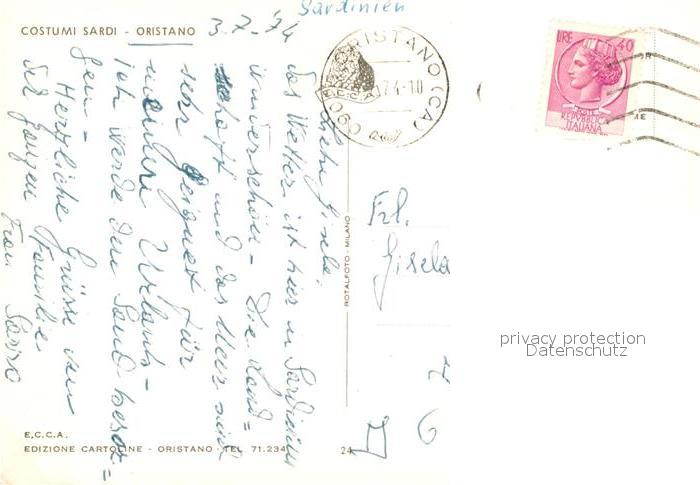 Sardinien
COSTUMI SARDI - ORISTANO
3.7.74
Liebe Gisela,
das Wetter ist hier in Sardinien
wunderschön - Die Land=
schaft und das Meer sind
sehr geeignet für
unsere Urlaub-
ich werde den Sand
gen -
Herzliche Grüsse von
der ganzen Familie
Frau Sasso
E.C.C.A.
EDIZIONE CARTOLINE - ORISTANO - TEL. 71.234
24
ROTALFOTO - MILANO
ORISTANO (CA)
E.C.C.A.
090
7.74-10
LIRE 40
POSTE
REPVBBLICA
ITALIANA
Frl.
Gisela
privacy protection
Datenschutz